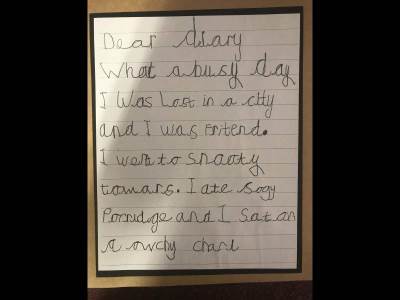 Dear diary
What a busy day
I was Lost in a city
and I was fritend.
I went to snooty
tomars. I ate sogy
Porridge and I sat on
a owchy chare